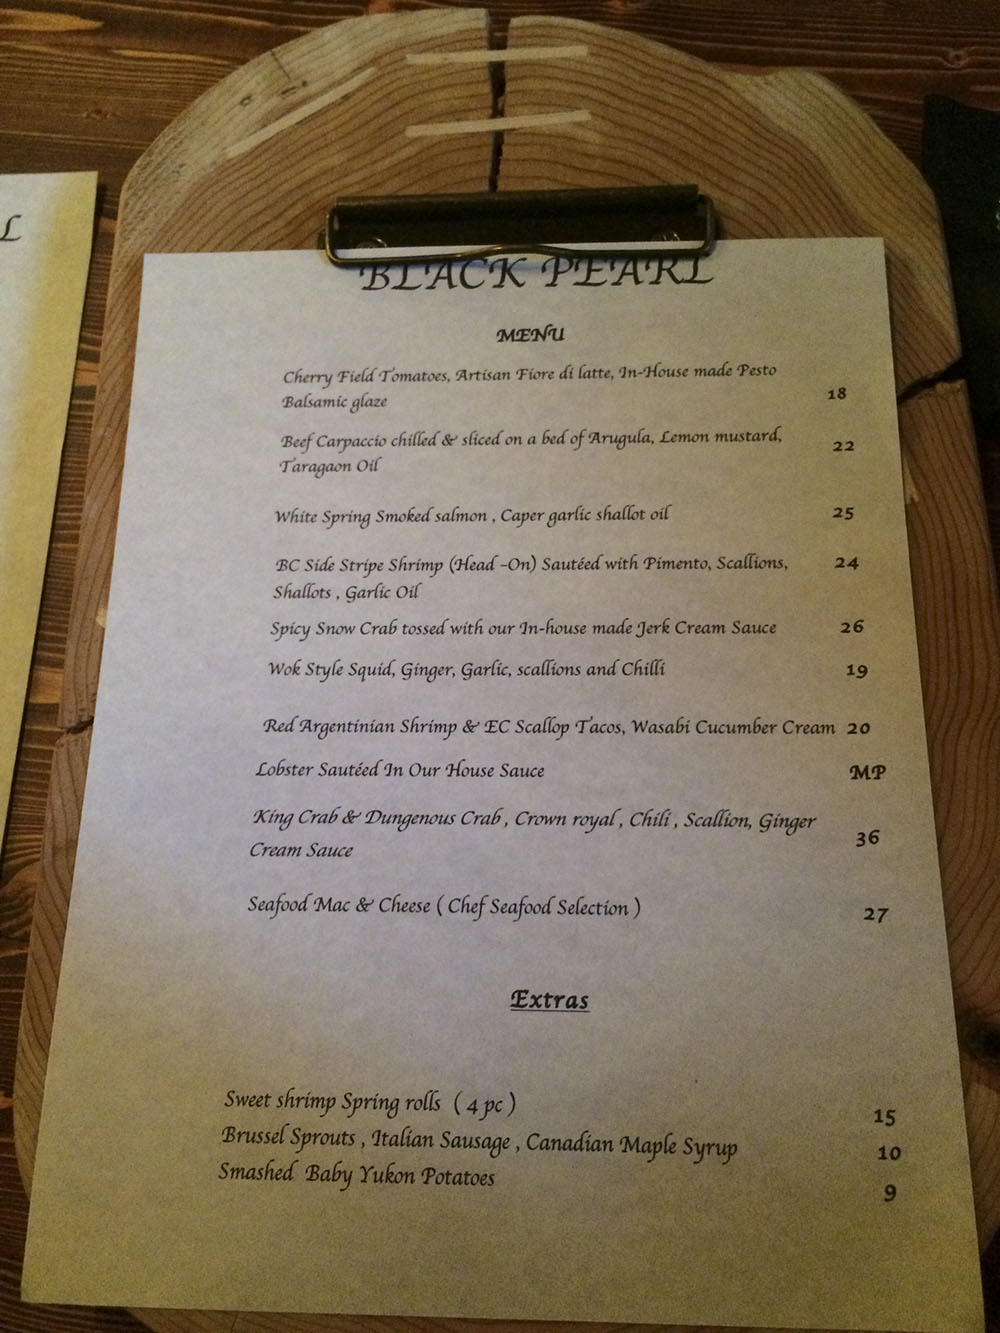 L
BLACK PEARL
MENU
Cherry Field Tomatoes, Artisan Fiore di latte, In-House made Pesto
Balsamic glaze 18
Beef Carpaccio chilled & sliced on a bed of Arugula, Lemon mustard, 22
Taragaon Oil
White Spring Smoked salmon , Caper garlic shallot oil 25
BC Side Stripe Shrimp (Head -On) Sautéed with Pimento, Scallions, 24
Shallots , Garlic Oil
Spicy Snow Crab tossed with our In-house made Jerk Cream Sauce 26
Wok Style Squid, Ginger, Garlic, scallions and Chilli 19
Red Argentinian Shrimp & EC Scallop Tacos, Wasabi Cucumber Cream 20
Lobster Sautéed In Our House Sauce MP
King Crab & Dungenous Crab , Crown royal , Chili , Scallion, Ginger 36
Cream Sauce
Seafood Mac & Cheese ( Chef Seafood Selection ) 27
Extras
Sweet shrimp Spring rolls ( 4 pc ) 15
Brussel Sprouts , Italian Sausage , Canadian Maple Syrup 10
Smashed Baby Yukon Potatoes 9